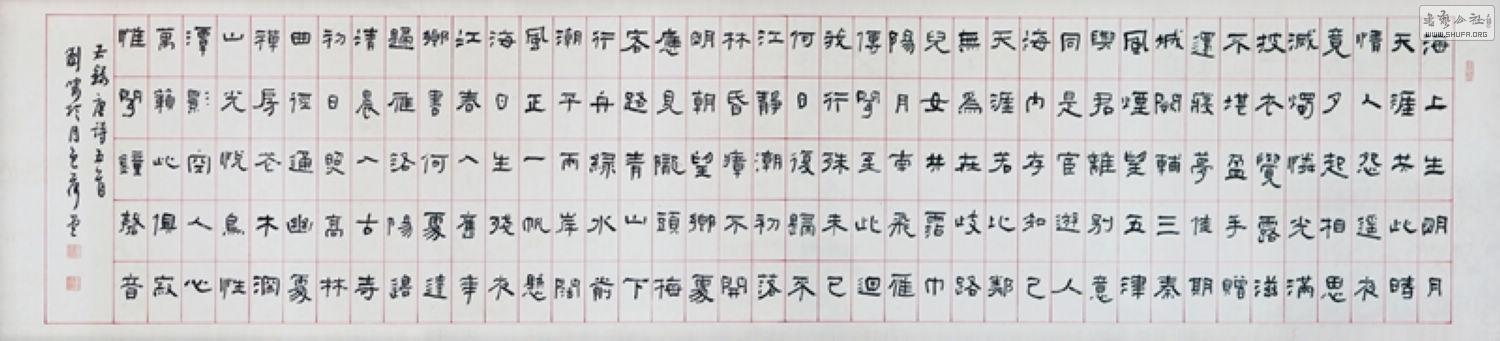 海上生明月
天涯共此時
情人怨遙夜
竟夕起相思
滅燭憐光滿
披衣覺露滋
不堪盈手贈
還寢夢佳期
城闕輔三秦
風煙望五津
與君離別意
同是宦遊人
海內存知己
天涯若比鄰
無為在岐路
兒女共霑巾
陽月南飛雁
傳聞至此迴
我行殊未已
何日復歸來
江靜潮初落
林昏瘴不開
明朝望鄉處
應見隴頭梅
客路青山下
行舟綠水前
潮平兩岸闊
風正一帆懸
海日生殘夜
江春入舊年
鄉書何處達
歸雁洛陽邊
清晨入古寺
初日照高林
曲徑通幽處
禪房花木深
山光悅鳥性
潭影空人心
萬籟此俱寂
惟聞鐘磬音
右錄唐詩五首
於月色齋
書藝公社
WWW.SHUFA.ORG